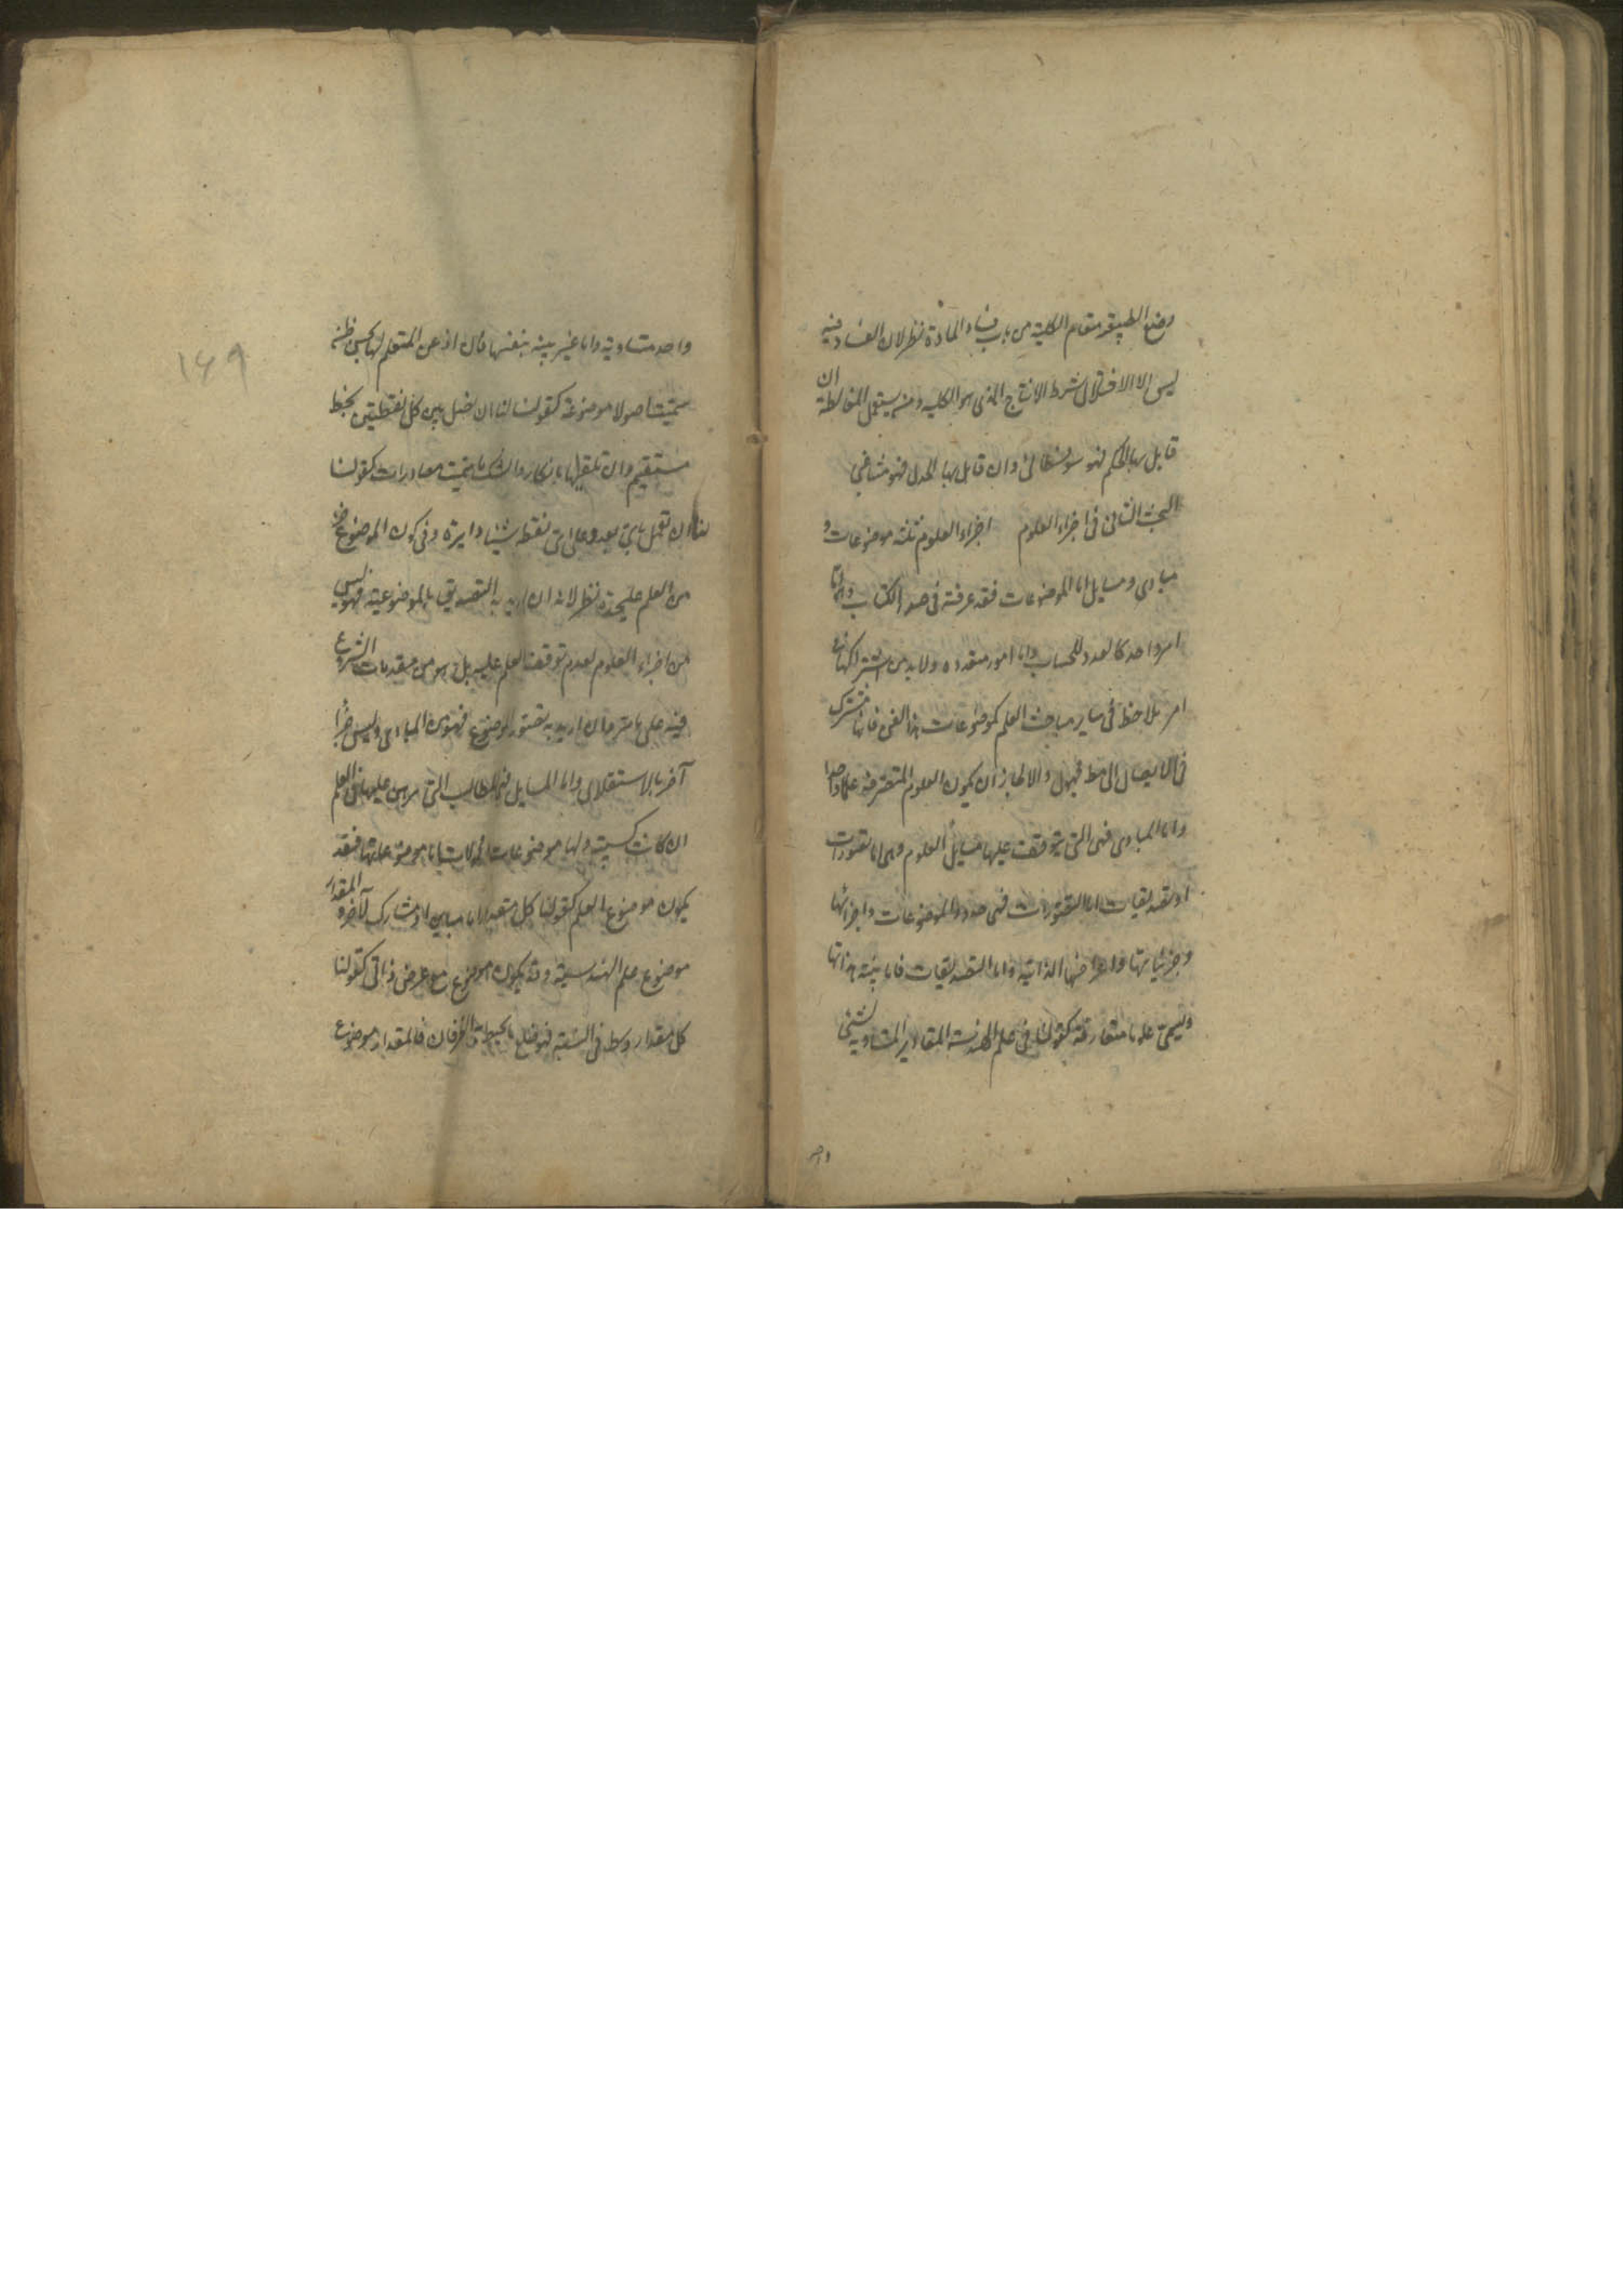 وضع الطبيعة مقام الكلية من باب فساد المادة نظر لان الفساد فيه
ليس الا الاختلال شرط الانتاج الذى هو الكلية ومن يستعمل المغالطة ان
قابل بها الحكيم فهو سوفسطائى وان قابل بها الجدلى فهو مشاغبى
البحث الثانى فى اجزاء العلوم اجزاء العلوم ثلثة موضوعات و
مبادى ومسايل اما الموضوعات فقد عرفته فى صدر الكتاب وهى اما
امر واحد كالعدد للحساب واما امور متعددة ولا بد من اشتراكها فى
امر يلاحظ فى ساير مباحث العلم كموضوعات هذا الفن فانها مشترك
فى الايصال الى مط مجهول والا لجاز ان يكون العلوم المتفرقة علما واحدا
واما المبادى فهى التى يتوقف عليها مسايل العلوم وهى اما تصورات
او تصديقات اما التصورات فهى حدود الموضوعات واجزائها
وجزئياتها واعراضها الذاتية واما التصديقات فاما بينة بذاتها
وتسمى علوما متعارفة كقولنا فى علم الهندسة المقادير المتساوية لشئ
واحد
واحد متساوية واما غير بينة بنفسها فان اذعن المتعلم لها بحسن ظنه
سميت اصولا موضوعة كقولنا لنا ان نصل بين كل نقطتين بخط
مستقيم وان تلقيها بانكار وشك سميت مصادرات كقولنا
لنا ان نعمل باى بعد وعلى اى نقطة شئنا دايرة وفى كون الموضوع جزء
من العلم عليحدة نظر لانه ان اريد به التصديق بالموضوعية فهو ليس
من اجزاء العلوم لعدم توقف العلم عليه بل هو من مقدمات الشروع
فيه على ما مر وان اريد به تصور الموضوع فهو من المبادى وليس جزأ
آخر بالاستقلال واما المسايل فهى المطالب التى يبرهن عليها فى العلم
ان كانت كسبية ولها موضوعات ومحمولات اما موضوعاتها فقد
يكون موضوع العلم كقولنا كل مقدار اما مباين او مشارك لآخر والمقدار
موضوع علم الهندسية وقد يكون موضوع مع عرض ذاتى كقولنا
كل مقدار وسط فى النسبة فهو ضلع ما يحيط به الطرفان فالمقدار موضوع
۱۶۹